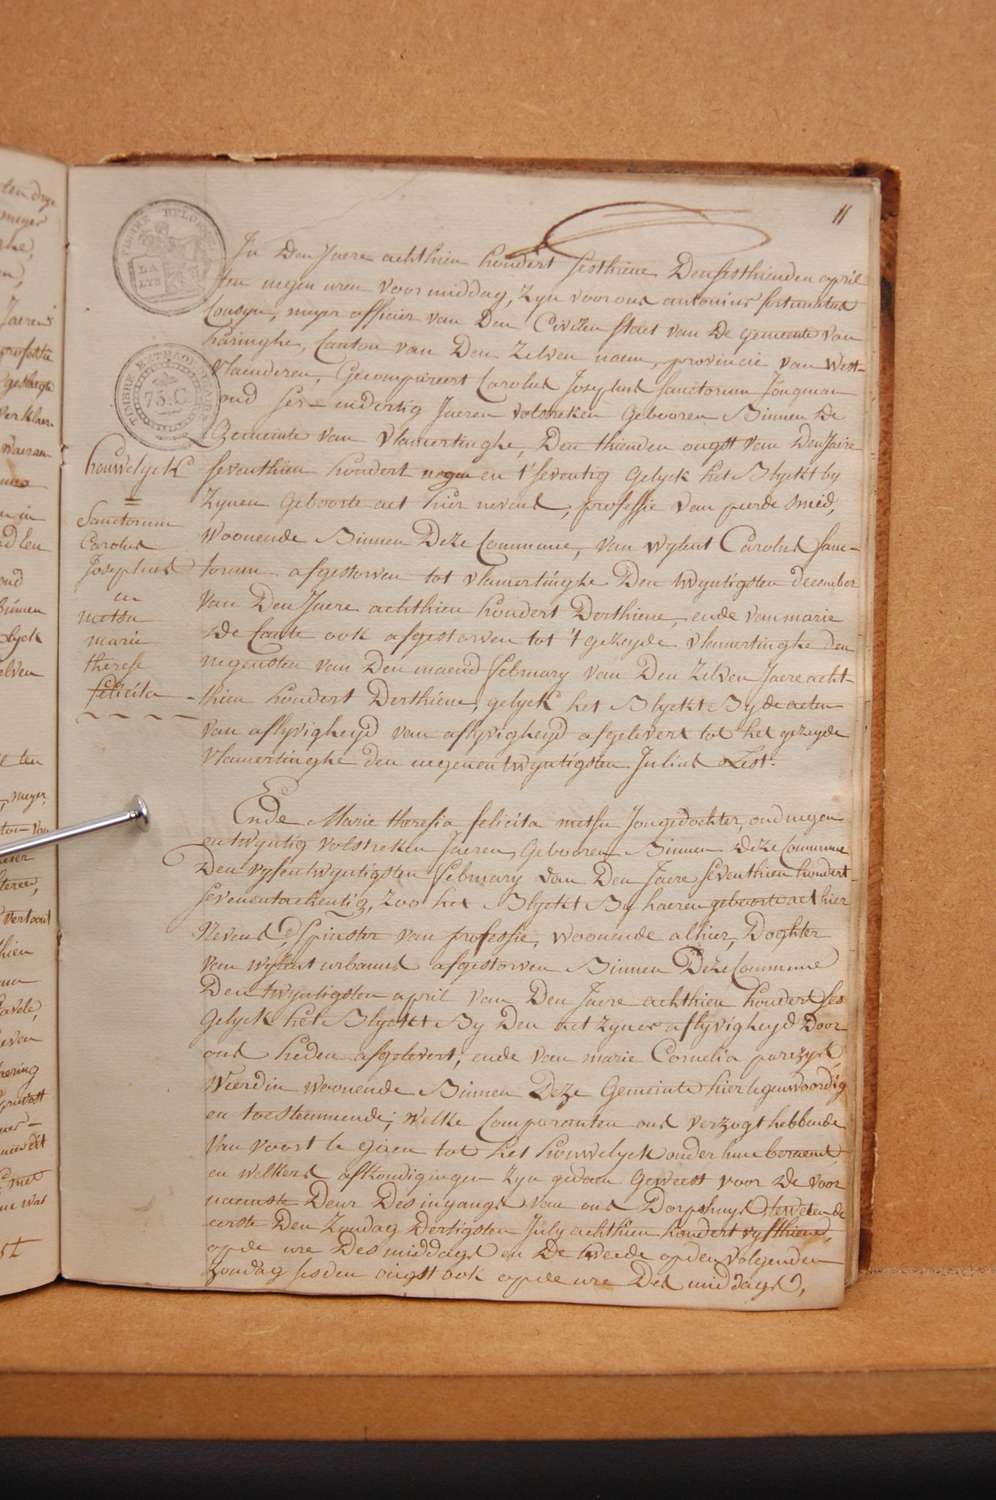 11
In Den Jaere achthien hondert sesthiene Den sesthienden april
ten negen uren voor middag, zyn voor ons antonius fortunatus
Cousyn, meyer officier van Den Civilen staet van De gemeente van
haringhe, Canton van Den Zelven naem, provincie van West-
Vlaenderen, Gecompareert Carolus Josephus Sanctorum Jongman
oud ses-endertig Jaeren volstreken Gebooren Binnen De
Gemeinte van Vlamertinghe, Den thienden ougst van Den Jaere
seventhien hondert negen en t'seventig Gelyck het Blyckt by
Zynen Geboorte act hier nevens, professie van peerde smid,
woonende Binnen Deze Commune, van wylent Carolus Sanc-
torum afgestorven tot vlamertinghe Den twyntigsten december
van Den Jaere achthien hondert Derthiene, ende van marie
De Cante ook afgestorven tot 't gezeyde vlamertinghe den
negensten van Den maend february van Den Zelven Jaere acht-
thien hondert Derthiene, gelyck het Blyckt By de acten
van aflyvigheyd van aflyvigheyd afgelevert tot het gezeyde
Vlamertinghe den negenentwyntigsten Julius Lest.
houwelyck
=
Sanctorum
Carolus
Josephus
en
metsu
marie
therese
felicita
Ende Marie theresia felicita metsu Jongedochter, oud negen
en twyntig volstreken Jaeren, Gebooren Binnen deze Commune
Den vyfentwyntigsten february van Den Jaere seventhien hondert
sevenentachentig, Zoo het Blyckt By haeren geboorte act hier
Nevens, Spinster van professie, woonende alhier, Doghter
van wylent urbanus afgestorven Binnen Deze Commune
Den twyntigsten april van Den Jaere achthien hondert ses
Gelyck het Blyckt By Den act zyner aflyvigheyd Door
ons heden afgelevert, ende van marie Cornelia
Wierdin woonende Binnen Deze Gemeinte hier tegenwoordig
en toestemmende; welke Comparanten ons verzogt hebbende
van voort te gaen tot het houwelyck onder hun beraemt,
en welkers afkondigingen zyn gedaen Geweest voor De voor
naemste Deur Des ingangs van ons Dorpshuys, te weten de
eerste Den Zondag Dertigsten July achthien hondert vyfthiene,
op de ure Des middags en De tweede op den volgenden
Zondag sesden ougst ook op de ure Des middags,